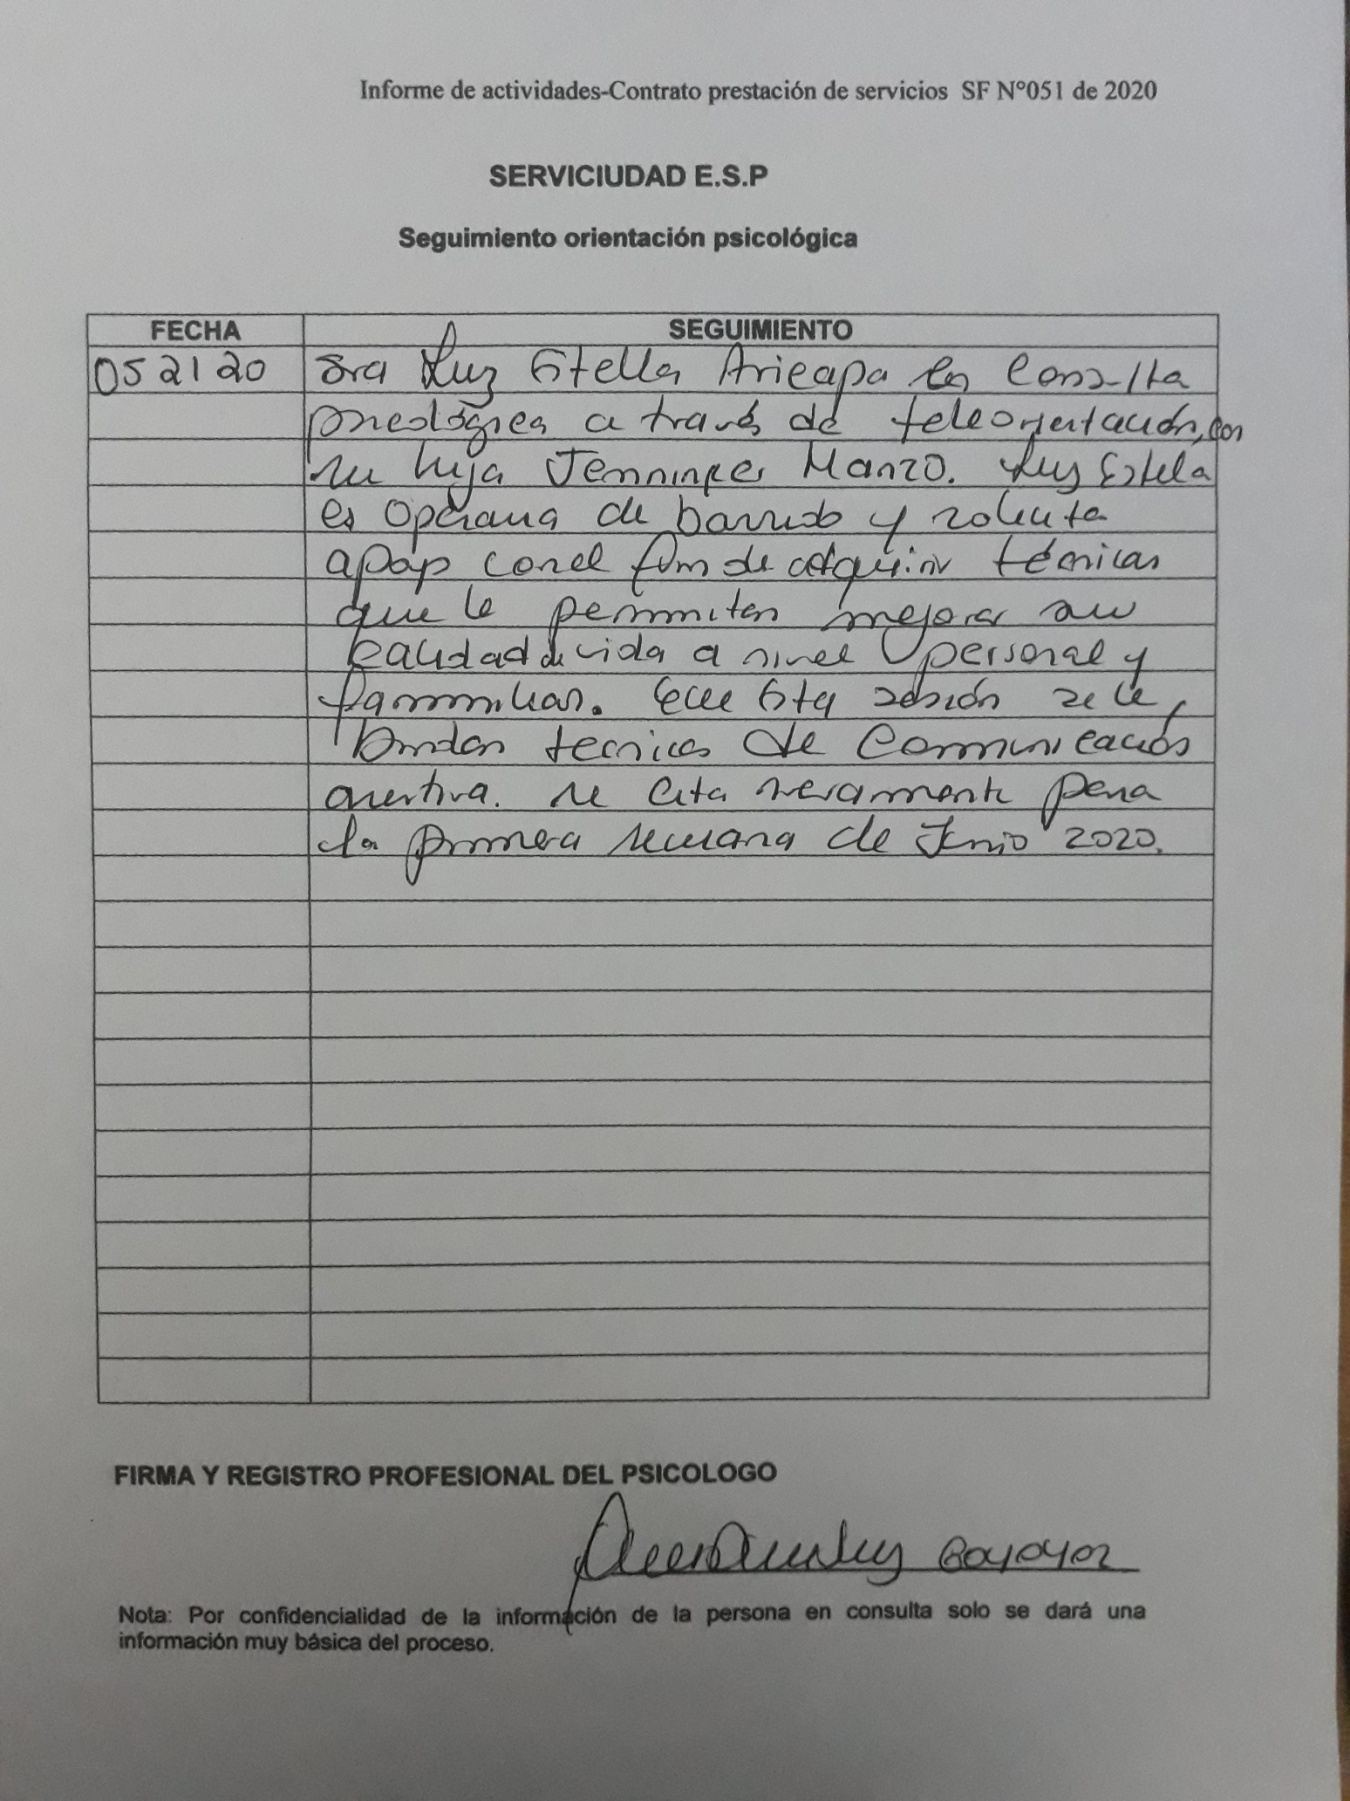 Informe de actividades-Contrato prestación de servicios SF N°051 de 2020
SERVICIUDAD E.S.P
Seguimiento orientación psicológica
FECHA SEGUIMIENTO
052120 Sra Luz Estella Aricapa en Consulta
psicológica a través de teleorientación, con
su hija Jenninfer Manzo. Luz Estela
es Operaria de barrido y solicita
apoyo con el fin de adquirir técnicas
que le permitan mejorar su
calidad de vida a nivel personal y
familiar. En esta sesión se le
brindan tecnicas de Comunicación
asertiva. se cita nuevamente para
la primera semana de Junio 2020.
FIRMA Y REGISTRO PROFESIONAL DEL PSICOLOGO
Nota: Por confidencialidad de la información de la persona en consulta solo se dará una
información muy básica del proceso.